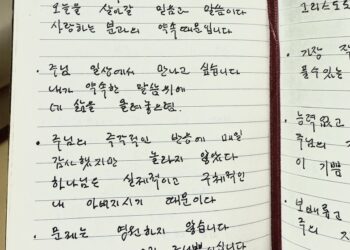 오늘을 살아갈 믿음과 말씀이다
사랑하는 분과의 약속때문입니다
· 주님 일상에서 만나고 싶습니다
내가 약속한 말씀위에
네 삶을 올려놓으렴.
· 주님의 즉각적인 반응에 매일
감사했지만 놀라지 않았다
하나님은 실제적이고 구체적인
내 아버지시기 때문이다
· 문제는 영원하지 않습니다
그리스도
· 가장
볼수있는
· 능력없고
주님의
이 기쁨
· 보배롭고
주의